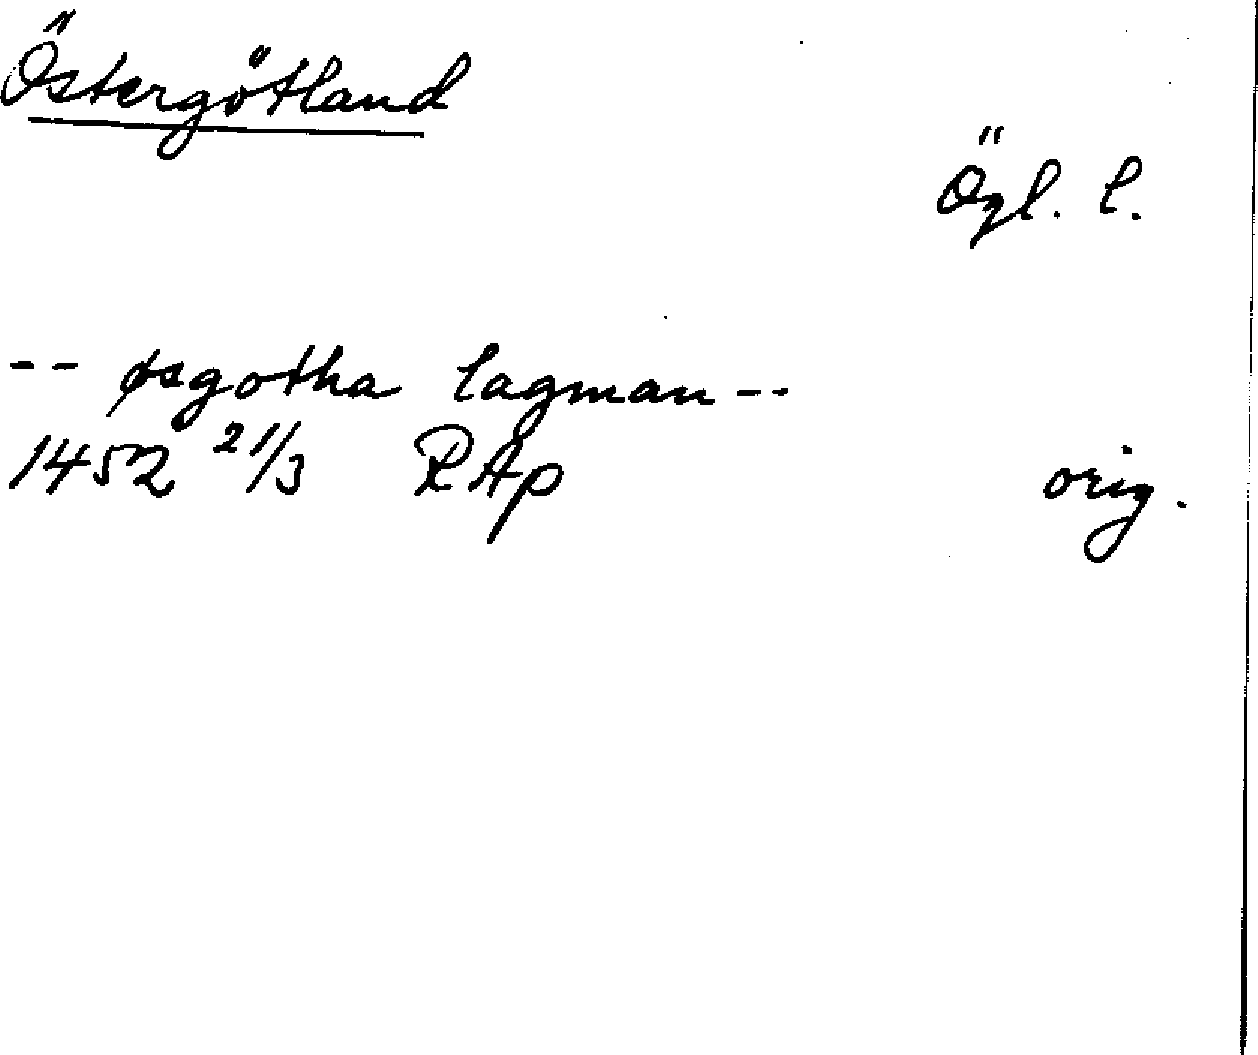 Östergötland
Ögl. l.
-- øsgotha lagman --
1452 21/3 RAp orig.